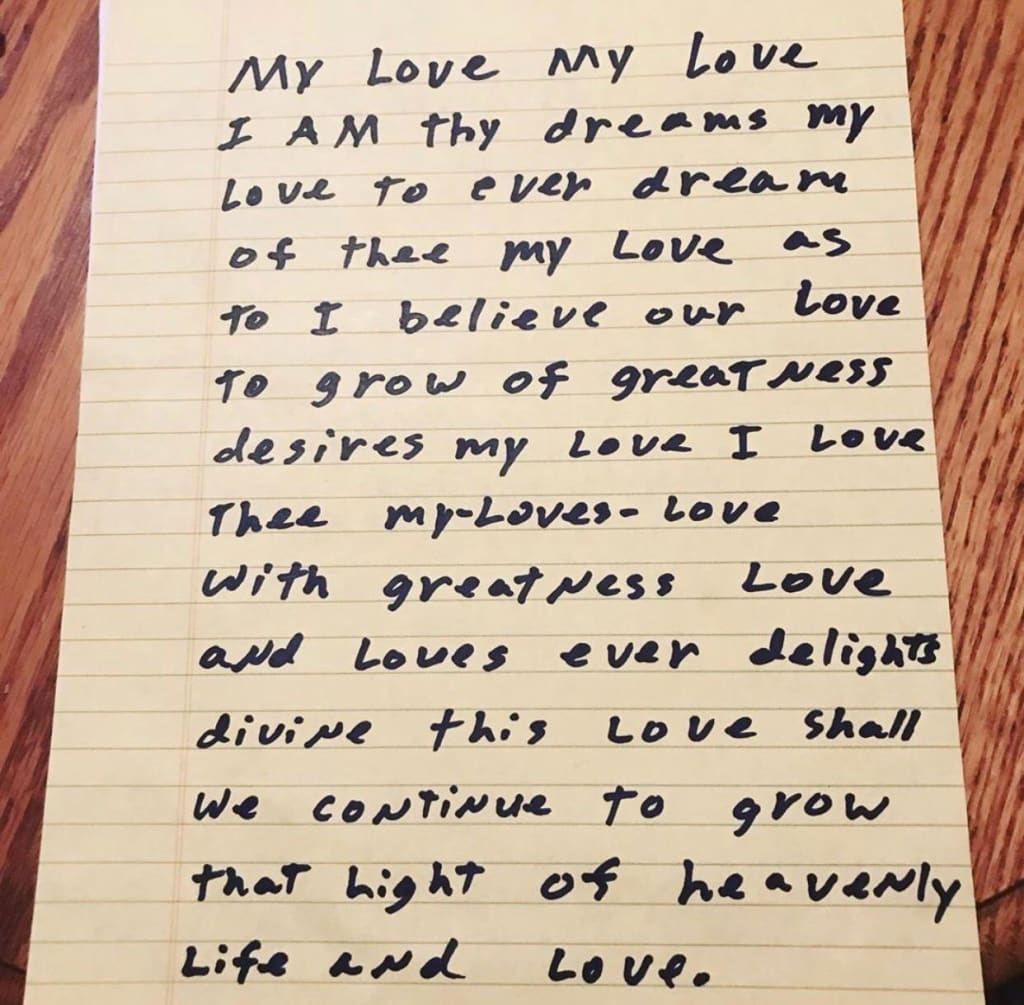 My Love My Love
I AM thy dreams my
Love to ever dream
of thee my Love as
to I believe our Love
to grow of greatness
desires my Love I Love
Thee my-Loves-Love
with greatness Love
and Loves ever delights
divine this Love shall
we continue to grow
that hight of heavenly
Life and Love.